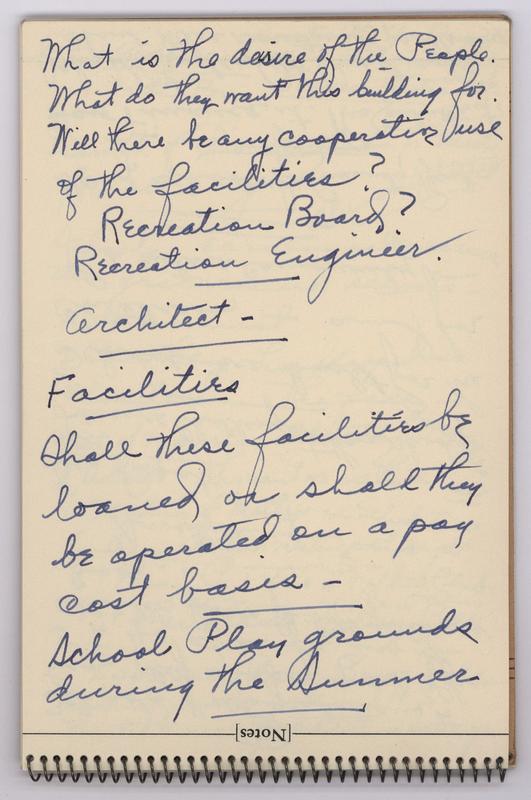 What is the desire of the People.
What do they want this building for.
Will there be any cooperative use
of the facilities?
Recreation Board?
Recreation Engineer.
Architect -
Facilities
Shall these facilities be
loaned or shall they
be operated on a pay
cost basis -
School Play grounds
during the Summer
[Notes]